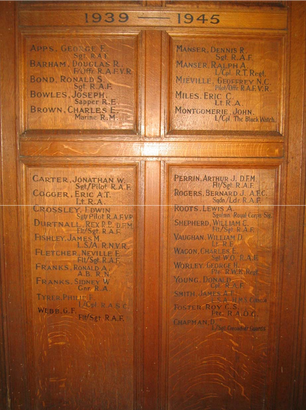 1939 — 1945
APPS, GEORGE F.
Sgt. R.A.F.
BARHAM, DOUGLAS R.
F/Off. R.A.F.V.R.
BOND, RONALD S.
Sgt. R.A.F.
BOWLES, JOSEPH.
Sapper R.E.
BROWN, CHARLES E.
Marine R.M.
MANSER, DENNIS R.
Sgt. R.A.F.
MANSER, RALPH A.
L/Cpl. R.T. Regt.
MIEVILLE, GEOFFREY N.C.
Pilot/Offr. R.A.F.V.R.
MILES, ERIC C.
Lt. R.A.
MONTGOMERIE, JOHN.
L/Cpl. The Black Watch
CARTER, JONATHAN W.
Sgt/Pilot R.A.F.
COGGER, ERIC A.T.
Lt. R.A.
CROSSLEY, IDWIN
Sgt/Pilot R.A.F.V.R.
DURTNALL, REX P.P. D.F.M.
Flt/Sgt. R.A.F.
FISHLEY, JAMES M.
L.S/A. R.N.V.R.
FLETCHER, NEVILLE F.
Flt/Sgt. R.A.F.
FRANKS, RONALD A.
A.B. R.N.
FRANKS, SIDNEY W.
Gnr. R.A.
TYRER, PHILIP
WEBB, G.F.
Flt/Sgt R.A.F.
PERRIN, ARTHUR J. D.F.M.
Flt/Sgt. R.A.F.
ROGERS, BERNARD J. A.F.C.
Sqdn/Ldr. R.A.F.
ROOTS, LEWIS A.
SHEPHERD, WILLIAM E.
Flt/Sgt. R.A.F.
VAUGHAN, WILLIAM D.
WAGON, CHARLES
WORLEY, GEORGE
YOUNG, DONALD
SMITH, JAMES
FOSTER, ROY C.S.
Pte. R.A.O.C.
CHAPMAN,